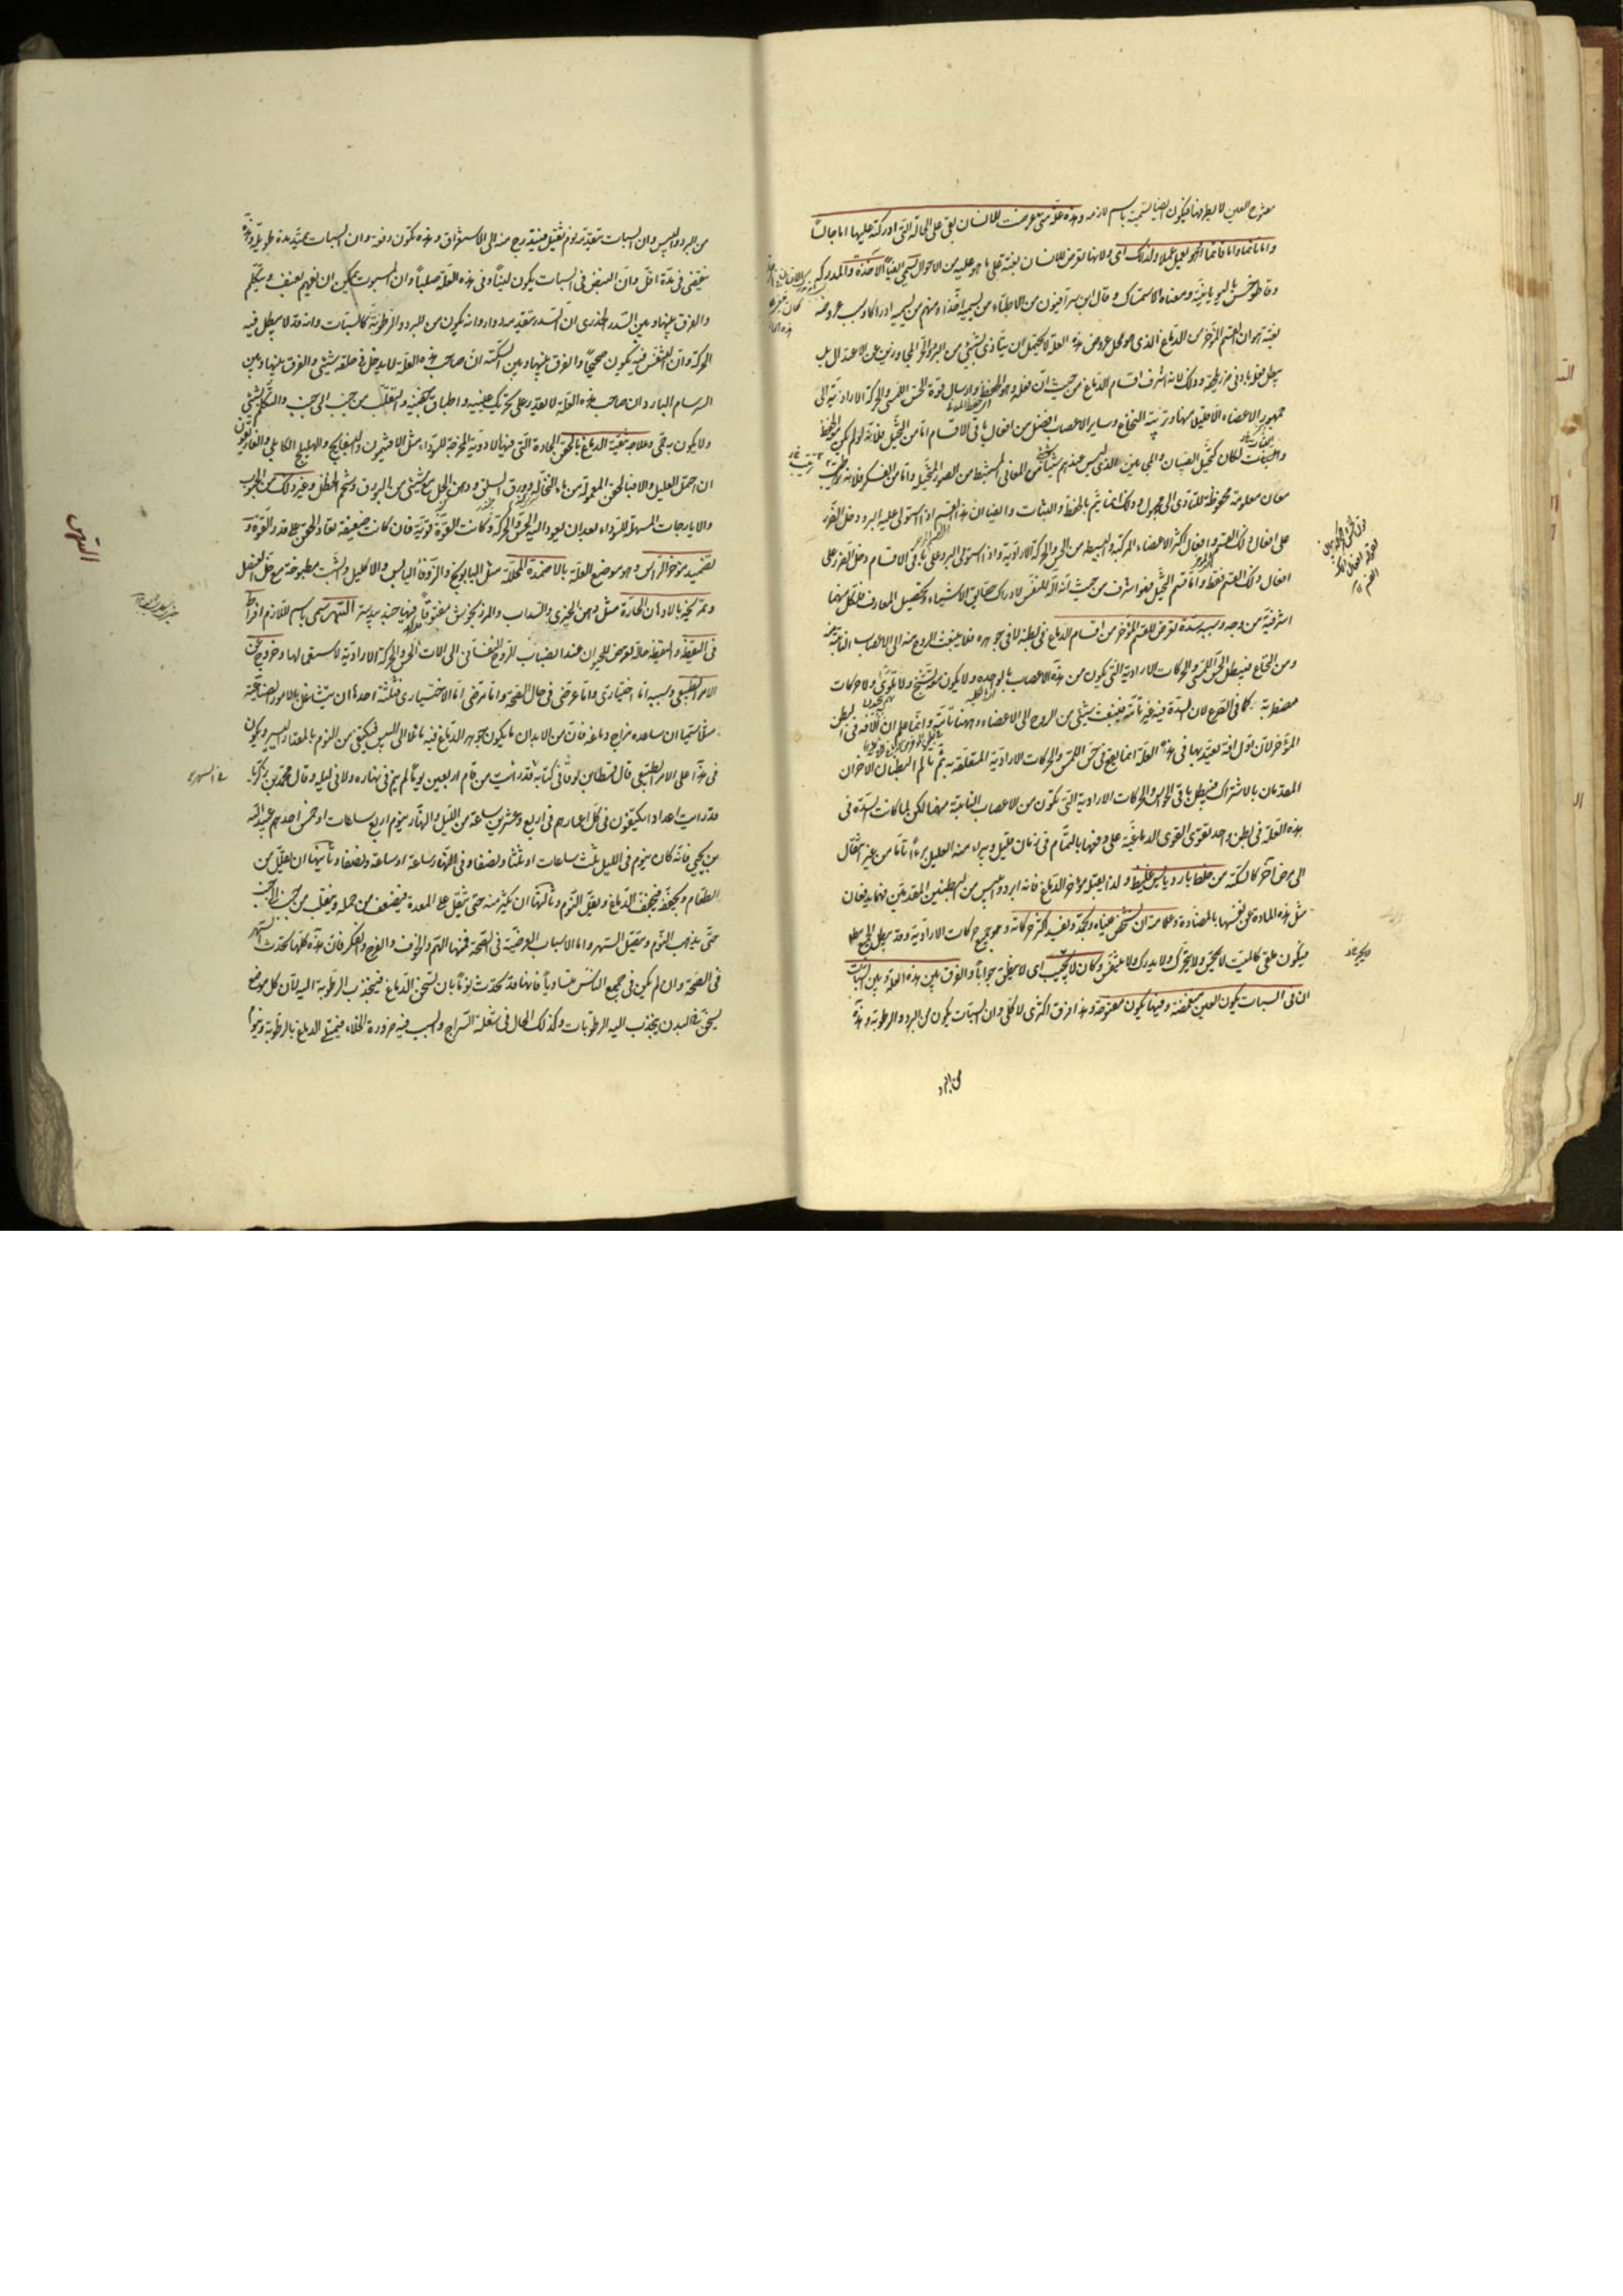 مفتوح العين لا يطرفها فيكون ايضا تسمية باسم لازمه وهذه علة متى عرضت للانسان بقى على الحالة التى ادركته عليها اما جالسا
واما نائما واما قائما او هو يعمل عملا ولذلك ولانها تعرض للانسان بغتة على ما هو عليه من الاحوال سمى ايضا الآخذة والمدركة
وقاطوخس باليونانية ومعناه الاستمساك وقال ابن سرافيون من الاطباء من يسميه آخذا ومنهم من يسميه ادراكا وسبب عروضه
بغتة هو ان القسم المؤخر من الدماغ الذى هو محل عروض هذه العلة لا يحتمل ان يتأذى بشئ من البرد والحر المجاوزين عن الاعتدال بل
يبطل فعله بادنى ضرر يلحقه وذلك لانه اشرف اقسام الدماغ من حيث ان فعله وهو الحفظ وارسال قوة الحس اللمسى والحركة الارادية الى
جمهور الاعضاء الا قليلا منها وتربية النخاع وساير الاعصاب افضل من افعال باقى الاقسام اما من التخيل فلانه لو لم يكن الحفظ
لكان كتخيل الصبيان والمجانين الذى ليس عندهم شئ من المعانى المستنبط من الصور المتخيلة واما من الفكر فلانه ترتيب
معان معلومة محفوظة للتادى الى مجهول وذلك انما يتم بالحفظ والثبات وايضا ان هذا القسم اذا استولى عليه البرد دخل الضرر
على افعال ذلك القسم وافعال اكثر الاعضاء المركبة والبسيطة من الحس والحركة الارادية واذا استولى البرد على باقى الاقسام دخل الضرر على
افعال ذلك القسم فقط واما قسم التخيل فهو اشرف من حيث انه آلة للنفس لادراك حقايق الاشياء وتحصيل المعارف فلكل منهما
اشرفية من وجه وسببه سدة تعرض للقسم المؤخر من اقسام الدماغ فى بطنه لا فى جوهره فلا ينبعث الروح منه الى الاعصاب النابتة منه
ومن النخاع فيبطل الحس اللمسى والحركات الارادية التى تكون من هذه الاعصاب بالواحدة ولا يكون معه تشنج ولا تلوى ولا حركات
مضطربة كما فى الصرع لان السدة فيه غير تامة فينبعث شئ من الروح الى الاعضاء وههنا تامة واعلم ان الآفة فى البطن
المؤخر لان اول آفة يعتد بها فى هذه العلة انما يقع فى حس اللمس والحركات الارادية المتعلقة به ثم يألم البطنان الاخران
المقدمان بالاشتراك فيبطل باقى الحواس والحركات الارادية التى تكون من الاعصاب النابتة منهما لكن لما كانت السدة فى
هذه العلة فى بطن واحد تقوى القوى الدماغية على دفعها بالتمام فى زمان قليل ويبرء منه العليل برءا تاما من غير انتقال
الى مرض آخر كالسكتة من خلط بارد يابس غليظ ولذا يقبله مؤخر الدماغ فانه ابرد وايبس من البطنين المقدمين فهما يدفعان
مثل هذه المادة عن نفسها بالمضادة وعلامته ان تشخص عيناه وتجمد ويفسد اكثر حركاته وهو جميع حركات الارادية وقد يبطل الجميع
فيكون ملقى كالميت لا يحس ولا يتحرك ولا يدرك ولا يتنفس وكان لا يجيب اى لا ينطق جوابا والفرق بين هذه العلة وبين السبات
ان فى السبات يكون العين مغمضة وفيها يكون مفتوحة وهذا فرق اكثرى لا كلى وان السبات يكون من البرد والرطوبة وهذه
من البرد
من البرد واليبس وان السبات يتقدمه نوم ثقيل فيتدرج منه الى الاستغراق وهذه تكون دفعة وان السبات يمتد مدة طويلة وهذه
تنقضى فى مدة اقل وان النبض فى السبات يكون لينا وفى هذه العلة صلبا وان المسبوت يمكن ان يفهم بعنف ويتكلم
والفرق بينها وبين السدر الخدرى ان السدر يتقدمه دوار وانه يكون من البرد والرطوبة كالسبات وانه قد لا يبطل فيه
الحركة وان النفس فيه يكون صحيحا والفرق بينها وبين السكتة ان صاحب هذه العلة لا يدخل فى حلقه شئ والفرق بينها وبين
السرسام البارد ان صاحب هذه العلة لا يقدر على تحريك عينيه واطباق جفنيه والتقلب من جنب الى جنب والتكلم بشئ
ولا يكون به حمى وعلاجه تنقية الدماغ بالحقن الحادة التى فيها الادوية المخرجة للسوداء مثل الافتيمون والبسفايج والهليلج الكابلى والغاريقون
ان احتمل العليل والا فبالحقن المعمولة من ماء النخالة وورق السلق ودهن الخل مع شئ من البورق وشحم الحنظل وغير ذلك من الحبوب
والايارجات المسهلة للسوداء بعد ان يعود اليه الحس والحركة وكانت القوة قوية فان كانت ضعيفة تعاد الحقن على قدر القوة و
تضميد مؤخر الراس وهو موضع العلة بالاضمدة المحللة مثل البابونج والزوفا اليابس والاكليل والشبت مطبوخة مع خل العنصل
وتمريخه بالادهان الحارة مثل دهن الخيرى والسداب والمرزنجوش مفتوقا فيها جندبيدستر السهر سمى باسم للازم افراط
فى اليقظة واليقظة حالة تعرض للحيوان عند انصباب الروح النفسانى الى الات الحس والحركة الارادية لا ستعمالها وخروج عن
الامر الطبيعى وسببه اما اختيارى واما عرضى فى حال الصحة واما مرضى اما الاختيارى فثلثة احدها ان يتشاغل بالامور الصناعية
مثلا سيما ان ساعده مزاج دماغه فان من الابدان ما يكون جوهر الدماغ فيه مائلا الى اليبس فيكتفى من النوم بالمقدار اليسير ويكون
فى هذا على الامر الطبيعى قال قسطا بن لوقا فى كتابه قد رايت من اقام اربعين يوما لم ينم فى نهاره ولا فى ليله وقال محمد بن زكريا
قد رايت اعدادا يكتفون فى كل اعمارهم فى اربع وعشرين ساعة من الليل والنهار بنوم اربع ساعات او خمس احدهم عبد الله
بن يحيى فانه كان ينوم فى الليل ثلث ساعات او ثلثا ونصفا وفى النهار ساعة او ساعة ونصفا وثانيها ان يقلل من
الطعام ويجففه فيجفف الدماغ ويقل النوم وثالثها ان يكثر منه حتى يثقل على المعدة فيضعف من حمله ويتقلب من جنب الى جنب
حتى يذهب النوم ويتقيل السهر واما الاسباب العرضية فى الصحة فمنها الهم والخوف والفرح والفكر فان هذه كلها تحدث السهر
فى الصحة وان لم يكن فى جميع الناس متساويا فانها قد تحدث نوما بان تسخن الدماغ فيجذب الرطوبة اليه لان كل موضع
يسخن فى البدن يجذب اليه الرطوبات وكذلك الحال فى شعلة السراج والسبب فيه ضرورة الخلاء فيمتلئ الدماغ بالرطوبة وينوم
السهر